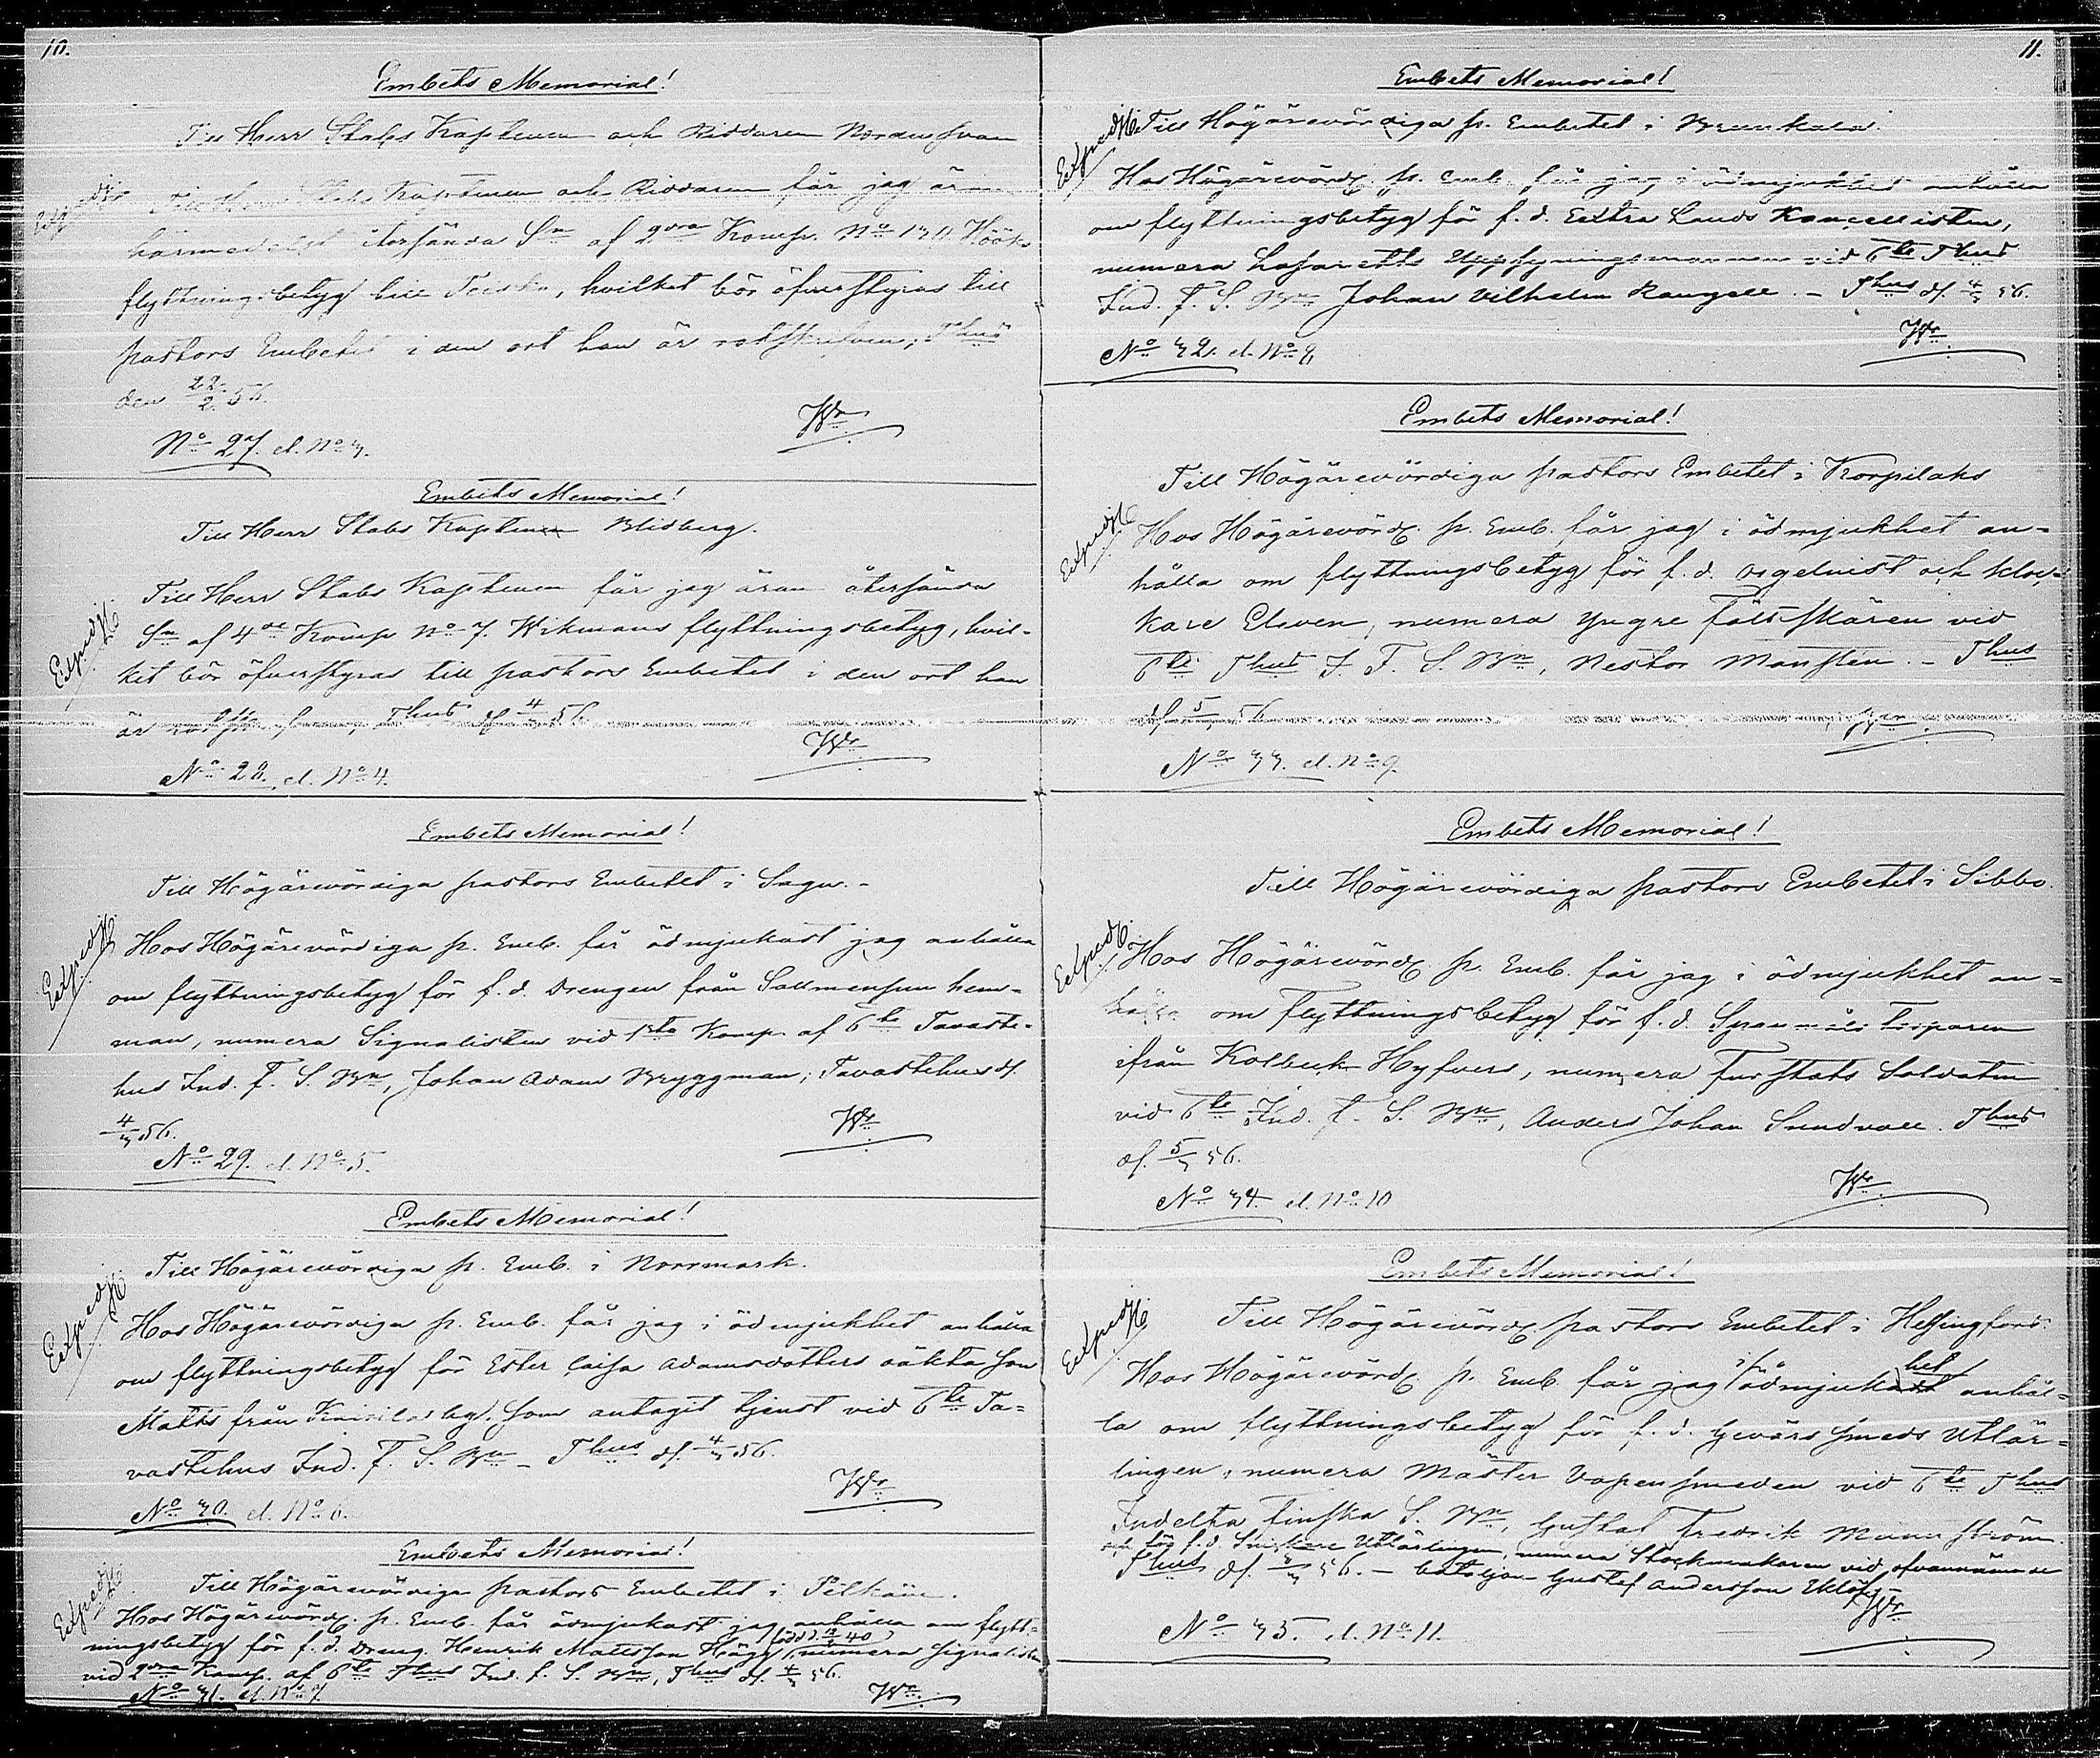 10.
Embets Memorial!
Till Herr Stabs Kaptenen och Riddaren Nordensvan
Exped
Till Herr Stabs Kaptenen och Riddaren får jag äran
härmedelst återsända Sn af 2dra Komp. No 130 Hööks
flyttningsbetyg till Finska, hvilket bör öfverstyras till
pastors Embetet i den ort han är rotskrifven; Thus
den 22/2 56.
Wr
No 27. el. No 3.
Embets Memorial!
Till Herr Stabs Kaptenen Blidberg.
Exped
Till Herr Stabs Kaptenen får jag äran återsända
Sn af 4de Komp No 7. Wikmans flyttningsbetyg, hvil-
ket bör öfverstyras till pastors Embetet i den ort han
är rotskrifven, Thus d. 4/3 56.
Wr
No 28. el. No 4.
Embets Memorial!
Till Högärevördiga pastors Embetet i Sagu.-
Exped
Hos Högärevördiga p. Emb. får ödmjukast jag anhålla
om flyttningsbetyg för f. d. Drengen från Sallmensuu hem-
man, numera Signalisten vid 1sta Komp af 6te Tavaste-
hus Ind. F. S. Bn, Johan Adam Bryggman; Tavastehus d.
4/3 56.
Wr
No 29. el. No 5.
Embets Memorial!
Till Högärevördiga p. Emb. i Norrmark.
Exped
Hos Högärevördiga p. Emb. får jag i ödmjukhet anhålla
om flyttningsbetyg för Ester Caisa Adamsdotters oäkta son
Matts från by, som antagit tjenst vid 6te Ta-
vastehus Ind. F. S. Bn - Thus d. 4/3 56.
Wr
No 30. el. No 6.
Embets Memorial!
Till Högärevördiga pastors Embetet i Pelkäne.
Exped
Hos Högärevörd. p. Emb. får ödmjukast jag anhålla om flytt-
ningsbetyg för f. d. Dreng Henrik Mattsson Hägg, född 40 numera Signalisten
vid 2dra Komp. af 6te Thus Ind. F. S. Bn, Thus d. 4/3 56.
No 31. el. No 7.
Wr
11.
Embets Memorial!
Exped
Till Högärevördiga p. Embetet i Brunkala.
Hos Högärevörd. p. Emb. får jag i ödmjukhet anhålla
om flyttningsbetyg för f. d. Extra Lands Kancellisten,
numera Lasaretts Uppsyningsmannen vid 6te Thus
Ind. F. S. Bn Johan Vilhelm Rangell. - Thus d. 4/3 56.
Wr
No 32. el. No 8.
Embets Memorial!
Till Högärevördiga pastors Embetet i Korpilaks
Exped
Hos Högärevörd. p. Emb. får jag i ödmjukhet an-
hålla om flyttningsbetyg för f. d. Orgelnist och kloc-
kare Eleven, numera Yngre fältskären vid
6te Thus I. F. S. Bn, Nestor Monstén. - Thus
d. 5/3 56
Wr
No 33. el. No 9.
Embets Memorial!
Till Högärevördiga pastors Embetet i Sibbo.
Exped
Hos Högärevörd. p. Emb. får jag i ödmjukhet an-
hålla om flyttningsbetyg för f. d. Spannmåls
ifrån Kolback Hyfvers, numera Furstats Soldaten
vid 6te Ind. F. S. Bn, Anders Johan Sundvall. Thus
d. 5/3 56.
Wr
No 34. el. No 10
Embets Memorial!
Exped
Till Högärevörd. pastors Embetet i Helsingfors.
Hos Högärevörd. p. Emb. får jag i ödmjukhet anhål-
la om flyttningsbetyg för f. d. Gevärs smeds Utlär-
lingen, numera Mäster Vapensmeden vid 6te Thus
Indelta Finska S. Bn, Gustaf Fredrik Munnström.
och för f. d. Snickare Utlärlingen, numera Stockmakaren vid ofvannämnde
Thus d. 56. - bataljon Gustaf Andersson Eklöf,-
Wr
No 35. el. No 11.